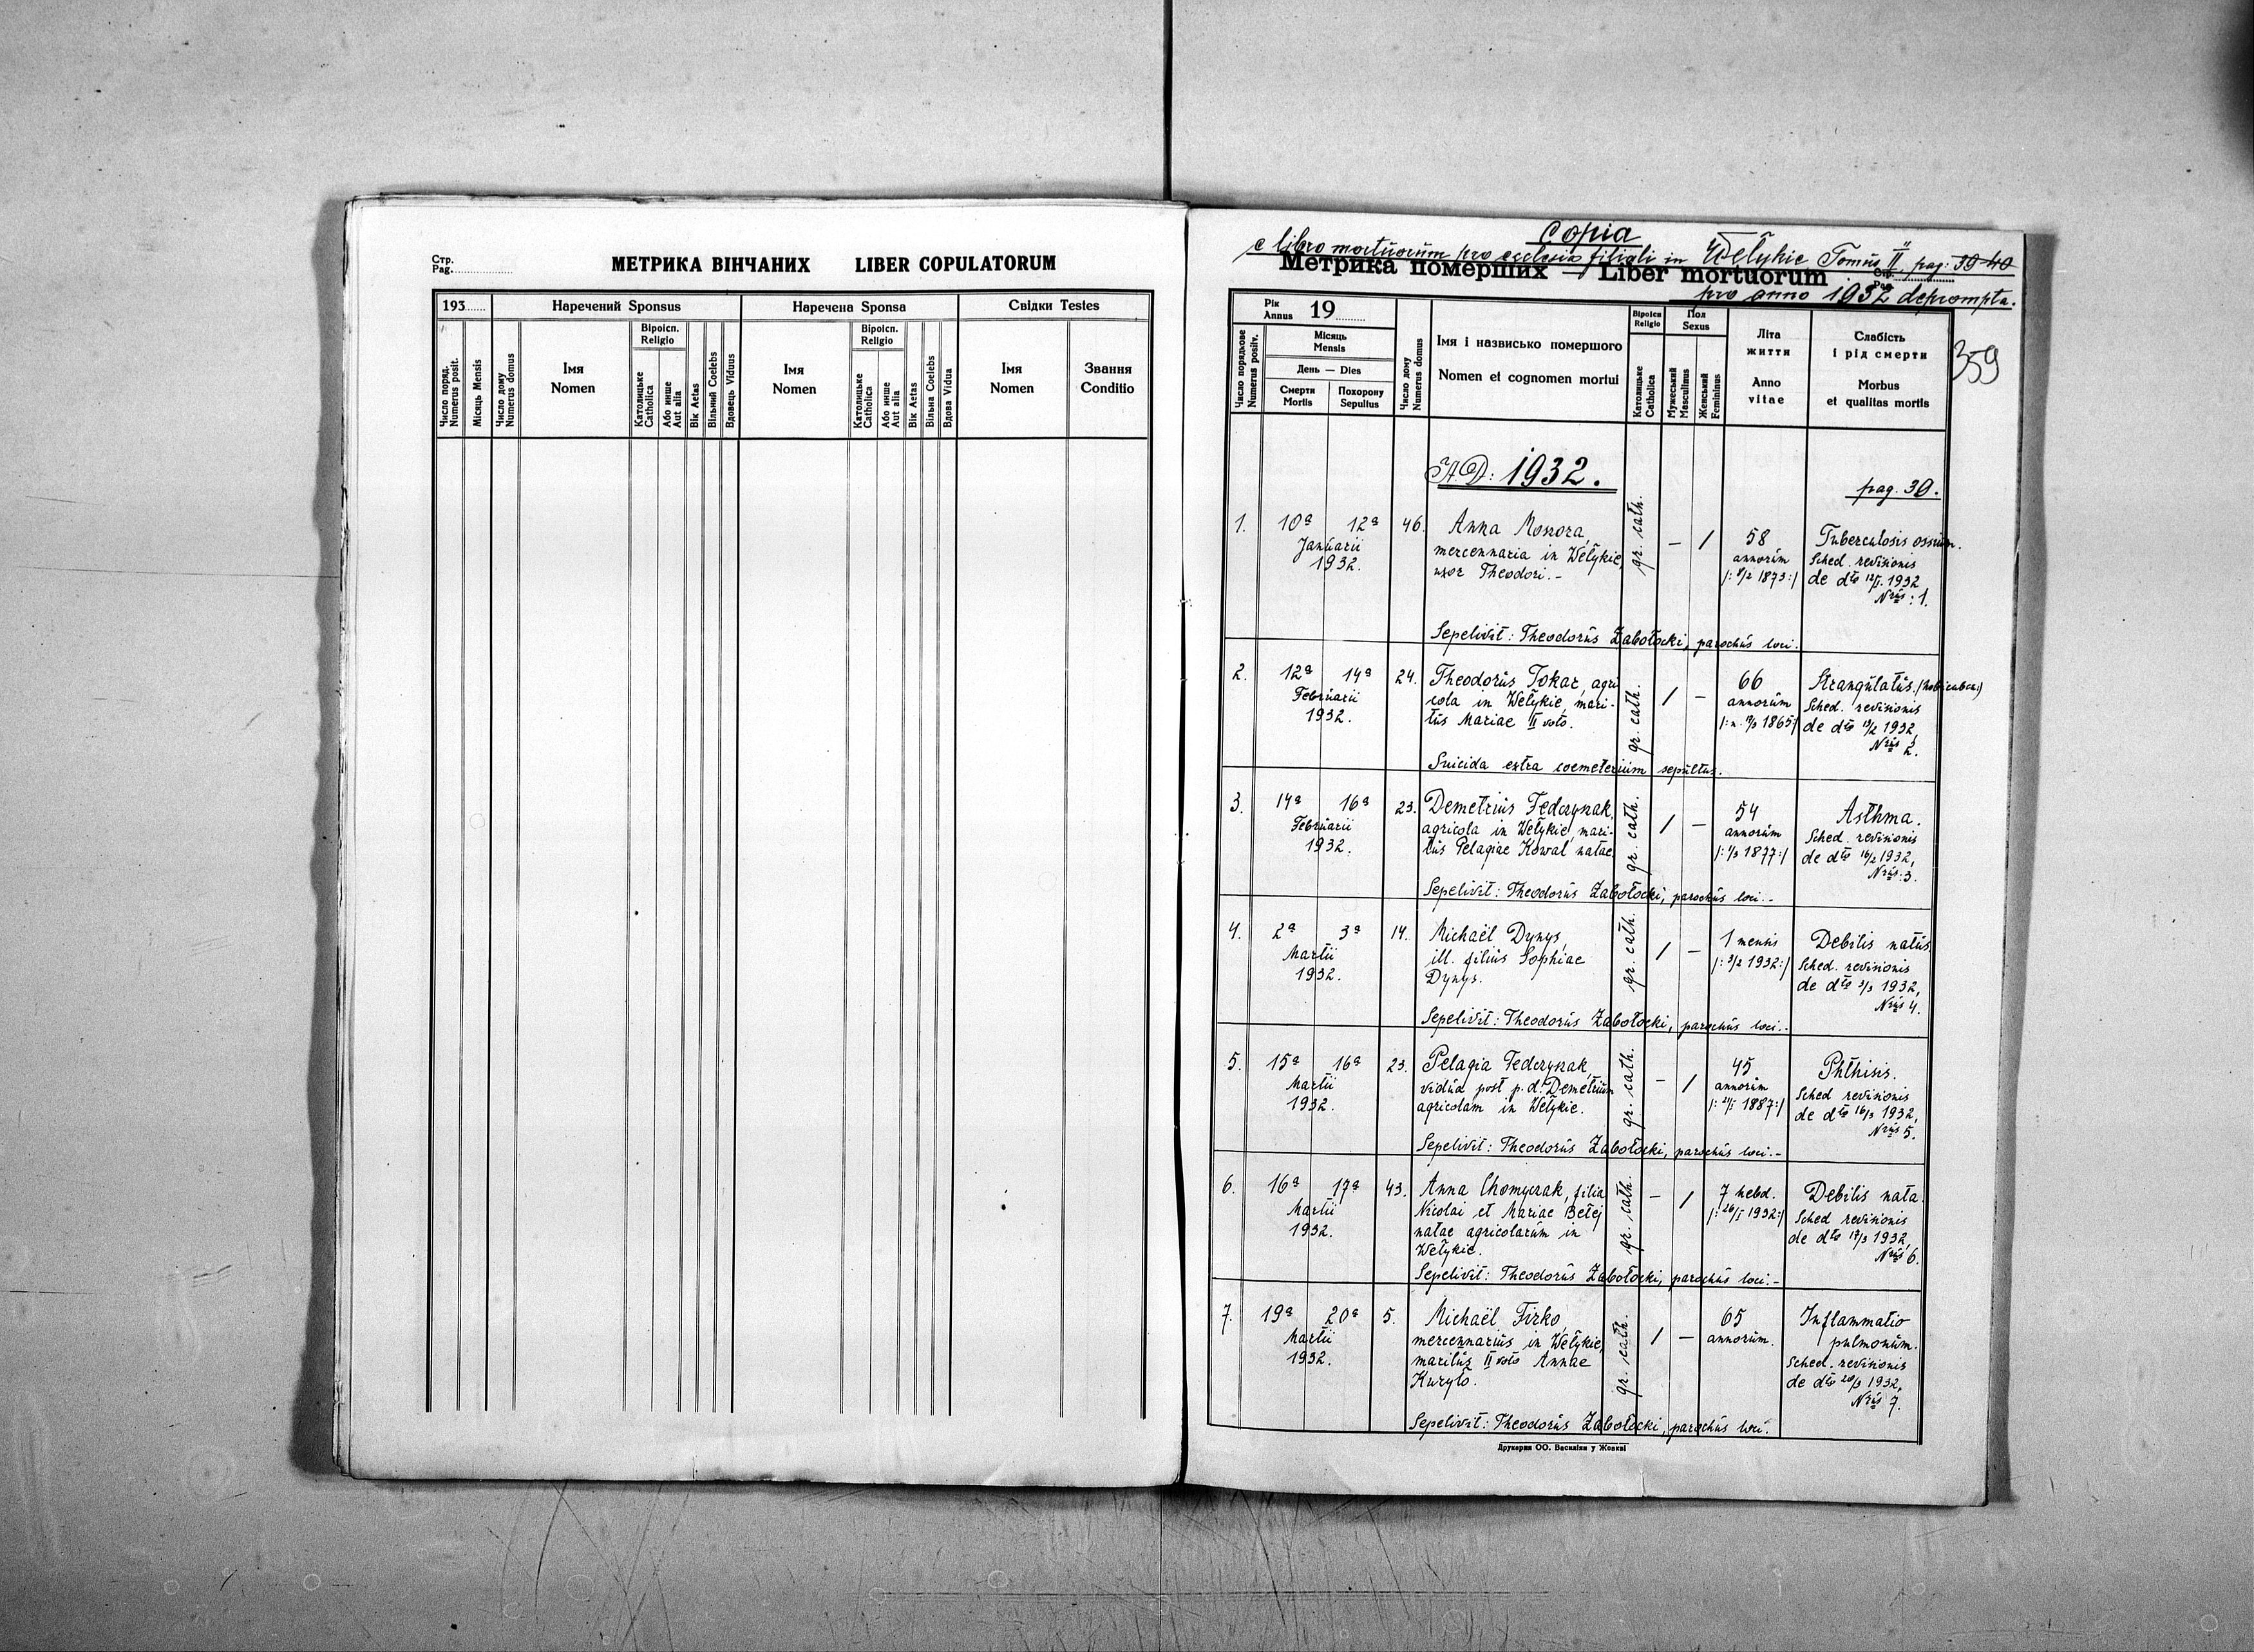 Стр.
Pag.
МЕТРИКА ВІНЧАНИХ LIBER COPULATORUM
193
Наречений Sponsus
Наречена Sponsa
Свідки Testes
Число поряд.
Numerus posit.
Місяць Mensis
Число дому
Numerus domus
Імя
Nomen
Віроісп.
Religio
Католицьке
Catholica
Або инше
Aut alia
Вік Aetas
Вільний Coelebs
Вдовець Viduus
Імя
Nomen
Віроісп.
Religio
Католицьке
Catholica
Або инше
Aut alia
Вік Aetas
Вільна Coelebs
Вдова Vidua
Імя
Nomen
Звання
Conditio
Copia
e libro mortuorum pro ecclesia filiali in Wełykie Tomus II. pag: 39-40
Метрика померших — Liber mortuorum
Стр.
Pag.
pro anno 1932 deprompta.
359
Рік
Annus 19
Число порядкове
Numerus positiv.
Місяць
Mensis
День — Dies
Смерти
Mortis
Похорону
Sepultus
Число дому
Numerus domus
Імя і назвисько помершого
Nomen et cognomen mortui
Віроісп
Religio
Католицьке
Catholica
Пол
Sexus
Мужеський
Masculinus
Женський
Femininus
Літа
життя
Anno
vitae
Слабість
і рід смерти
Morbus
et qualitas mortis
A.D: 1932.
pag. 39.
1. 10ª 12ª 46. Anna Mossora, gr. cath. — / 58 Tuberculosis ossium.
Januarii mercennaria in Wełykie, annorum Sched. revisionis
1932. uxor Theodori.- /: 8/2 1873:/ de dto 12/I. 1932
Nrus: 1.
Sepelivit: Theodorus Zabołocki, parochus loci.
2. 12ª 14ª 24. Theodorus Tokar, agri gr. cath. / — 66 Strangulatus.
Februarii cola in Wełykie, mari- annorum Sched. revisionis
1932. tus Mariae II voto. 1865:/ de dto 13/2 1932,
Nrus 2.
Suicida extra coemeterium sepultus.
3. 14ª 16ª 23. Demetrius Fedczynak, gr. cath. / — 54 Asthma.
Februarii agricola in Wełykie, mari- annorum Sched. revisionis
1932. tus Pelagiae Kowal natae. /: 1/3 1877:/ de dto 16/2 1932,
Nrus: 3.
Sepelivit: Theodorus Zabołocki, parochus loci.-
4. 2ª 3ª 14. Michaël Dynys, gr. cath. / — 1 mensis Debilis natus
Martii ill. filius Sophiae /: 3/2 1932:/ Sched. revisionis
1932. Dynys. de dto 3/3 1932,
Nrus 4.
Sepelivit: Theodorus Zabołocki, parochus loci.-
5. 15ª 16ª 23. Pelagia Fedczynak, gr. cath. — / 45 Phthisis.
Martii vidua post p. d. Demetrium annorum Sched revisionis
1932. agricolam in Wełykie. 1887:/ de dto 16/3 1932,
Nrus 5.
Sepelivit: Theodorus Zabołocki, parochus loci.-
6. 16ª 17ª 43. Anna Chomyczak, filia gr. cath. — / 7 hebd. Debilis nata.
Martii Nicolai et Mariae Betej /: 26/I 1932:/ Sched revisionis
1932. natae agricolarum in de dto 17/3 1932,
Wełykie. Nrus 6.
Sepelivit: Theodorus Zabołocki, parochus loci.-
7. 19ª 20ª 5. Michaël Firko, gr. cath. / — 65 Inflammatio
Martii mercennarius in Wełykie, annorum. pulmonum.
1932. maritus II voto Annae Sched. revisionis
Kuryło. de dto 20/3 1932,
Nrus 7.
Sepelivit: Theodorus Zabołocki, parochus loci.
Друкарня ОО. Василіян у Жовкві